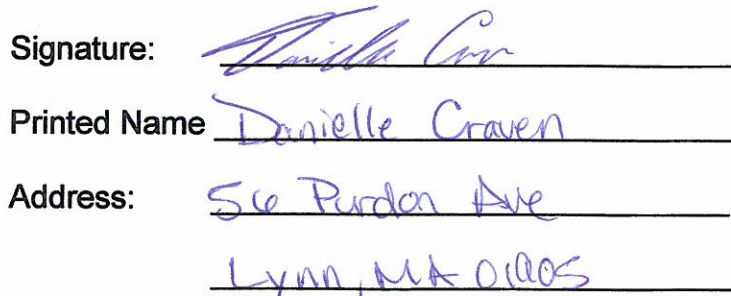 Signature: Danielle Craven
Printed Name Danielle Craven
Address: 56 Purdon Ave
Lynn, MA 01905